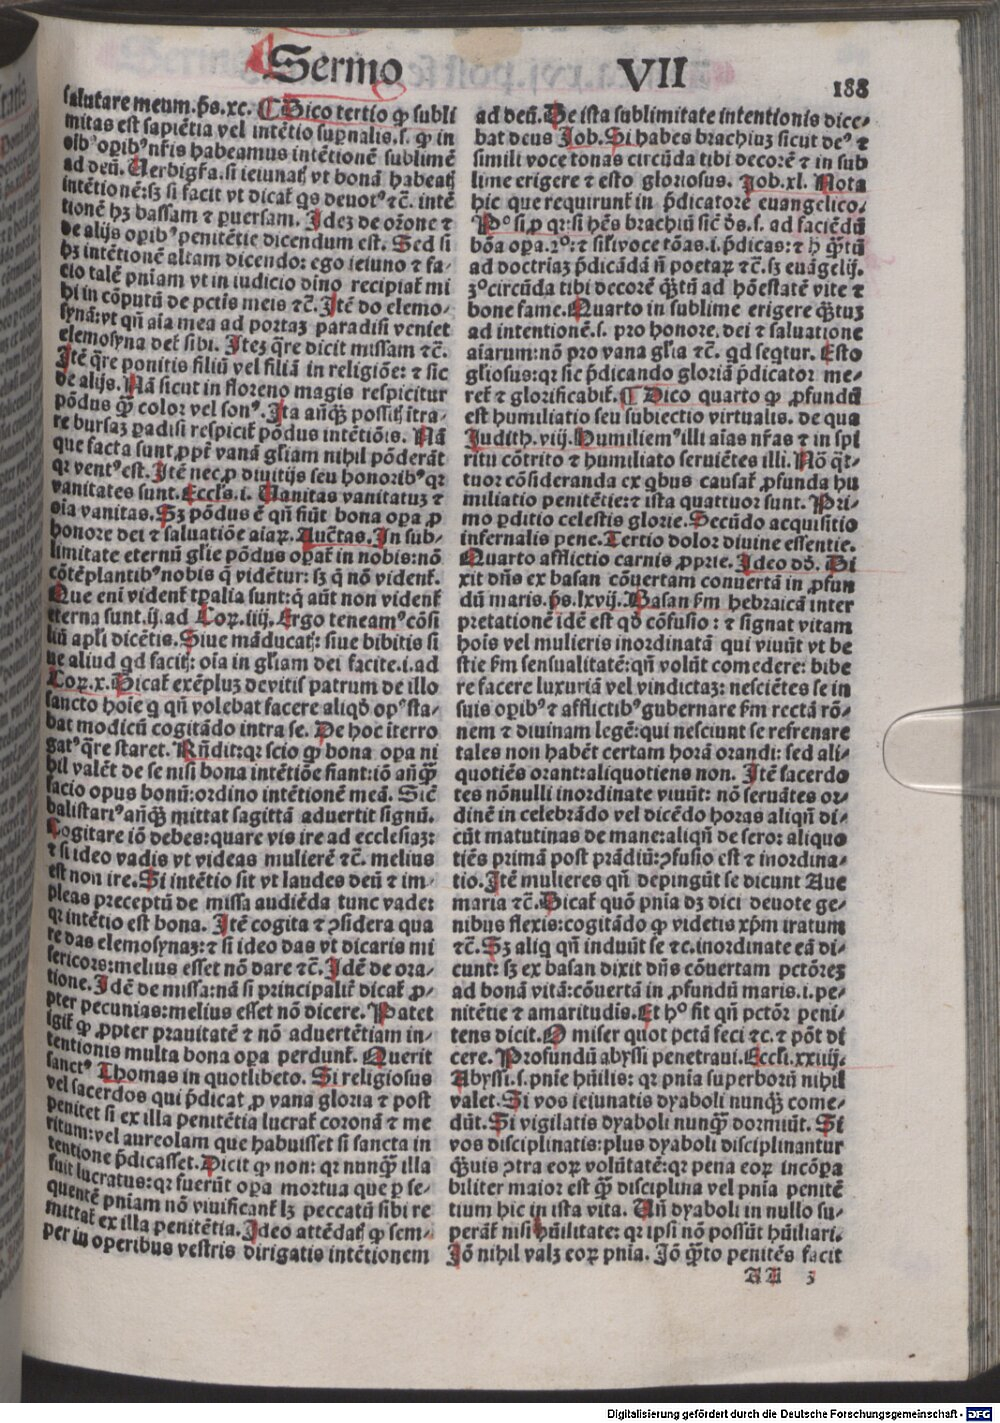 Sermo VII 188
salutare meum.p̄s.xc. ¶ Dico tertio ꝙ subli
mitas est sapiētia vel intētio suꝑnalis.s. ꝙ in
oībꝰ oꝑibꝰ nr̄is habeamus intētionē sublimē
ad deū. Uerbigr̄a.si ieiunatꝭ vt bonā habeatꝭ
intētionē:sꝫ si facit vt dicat̄ qs deuotꝰ ⁊c̄. intē
tionē hꝫ bassam ⁊ ꝑuersam. Idez de or̄one ⁊
de alijs oꝑibꝰ penitētie dicendum est. Sed si
hꝫ intētionē altam dicendo: ego ieiuno ⁊ fa⸗
cio talē pn̄iam vt in iudicio dino recipiat̄ mi
hi in cōputū de pctīs meis ⁊c̄. Itē do elemo⸗
synā:vt qn̄ aīa mea ad portaꝫ paradisi veniet
elemosyna det̄ sibi. Iteꝫ q̄re dicit missam ⁊c̄.
Itē q̄re ponitis filiū vel filiā in religiōe: ⁊ sic
de alijs. Nā sicut in floreno magis respicitur
pōdus q̄ꝫ color vel sonꝰ. Ita anq̄ꝫ possitꝭ ītra⸗
re bursaꝫ ꝑadisi respicit̄ pōdus intētiōis. Nā
que facta sunt ꝓpt̄ vanā gl̄iam nihil pōderāt
qꝛ ventꝰ est. Itē nec ꝓ diuitijs seu honoribꝰ qꝛ
vanitates sunt. Eccls̄.i. Uanitas vanitatuꝫ ⁊
oīa vanitas. Sꝫ pōdus ē qn̄ fiūt bona oꝑa ꝓ
honore dei ⁊ saluatiōe aīaꝝ. Auc̄tas. In sub⸗
limitate eternū gl̄ie pōdus oꝑat̄ in nobis:nō
cōtēplantibꝰ nobis q̄ vidētur: sꝫ q̄ nō vident̄.
Que eni vident̄ tꝑalia sunt:q̄ aūt non vident̄
eterna sunt.ij.ad Coꝝ.iiij. Ergo teneamꝰ cōsi
liū apl̄i dicētis. Siue māducatꝭ: siue bibitis si
ue aliud qd facitꝭ: oīa in gl̄iam dei facite.i.ad
Coꝝ.x. Dicat̄ exēpluꝫ de vitis patrum de illo
sancto hoīe q qn̄ volebat facere aliqd̄ opꝰ sta⸗
bat modicū cogitādo intra se. De hoc īterro
gatꝰ q̄re staret. Rn̄dit:qꝛ scio ꝙ bona oꝑa ni
hil valēt de se nisi bona intētiōe fiant:iō anq̄ꝫ
facio opus bonū:ordino intētionē meā. Sicē
balistariꝰ anq̄ꝫ mittat sagittā aduertit signū.
Cogitare iō debes:quare vis ire ad ecclesiaꝫ:
⁊ si ideo vadis vt videas mulierē ⁊c̄. melius
est non ire. Si intētio sit vt laudes deū ⁊ im⸗
pleas preceptū de missa audiēda tunc vade:
qꝛ intētio est bona. Itē cogita ⁊ ꝯsidera qua
re das elemosynaꝫ:⁊ si ideo das vt dicaris mi
sericors:melius esset nō dare ⁊c̄. Idē de ora⸗
tione. Idē de missa:nā si principalit̄ dicat̄ ꝓ⸗
pter pecunias:melius esset nō dicere. Patet
igit̄ ꝙ ꝓpter prauitatē ⁊ nō aduertētiam in⸗
tentionis multa bona oꝑa perdunt̄. Querit
sanctꝰ Thomas in quotlibeto. Si religiosus
vel sacerdos qui p̄dicat ꝓ vana gloria ⁊ post
penitet si ex illa penitētia lucrat̄ coronā ⁊ me
ritum:vel aureolam que habuisset si sancta in
tentione p̄dicasset. Dicit ꝙ non: qꝛ nunq̄ꝫ illa
fuit lucratus:qꝛ fuerūt oꝑa mortua que ꝑ se⸗
quentē pn̄iam nō viuificant̄ lꝫ peccatū sibi re
mittat̄ ex illa penitētia. Ideo attēdatꝭ ꝙ sem⸗
per in operibus vestris dirigatis intētionem
ad deū. De ista sublimitate intentionis dice⸗
bat deus Job. Si habes brachiuꝫ sicut deꝰ ⁊
simili voce tonas circūda tibi decorē ⁊ in sub
lime erigere ⁊ esto gloriosus. Job.xl. Nota
hic que requirunt̄ in p̄dicatore euangelico.
Pꝰ si ꝓ qꝛ:si hēs brachiū sic̄ ds̄.s. ad faciēdū
bōa oꝑa.2º: ⁊ sil̄i voce tōas.i.p̄dicas:⁊ h q̄tū
ad doctriaꝫ p̄dicādā n̄ poetaꝝ ⁊c̄.sꝫ euāgelij.
3º circūda tibi decorē q̄tū ad hōestatē vite ⁊
bone fame. Quarto in sublime erigere q̄tuꝫ
ad intentionē.s. pro honore dei ⁊ saluatione
aīarum:nō pro vana gl̄ia ⁊c̄. qd seqtur. Esto
gl̄iosus:qꝛ sic p̄dicando gloriā p̄dicator me⸗
ret̄ ⁊ glorificabit̄. ¶ Dico quarto ꝙ ꝓfundū
est humiliatio seu subiectio virtualis. de qua
Judith.viij. Humiliemꝰ illi aīas nr̄as ⁊ in spī
ritu cōtrito ⁊ humiliato seruiētes illi. Nō q̄t⸗
tuor cōsideranda ex qbus causat̄ ꝓfunda hu
miliatio penitētie:⁊ ista quattuor sunt. Pri⸗
mo ꝑditio celestis glorie. Secūdo acquisitio
infernalis pene. Tertio dolor diuine essentie.
Quarto afflictio carnis ꝓprie. Ideo dō. Di
xit dn̄s ex basan cōuertam conuertā in ꝓfun
dū maris. p̄s.lxvij. Basan fm̄ hebraicā inter
pretationē idē est qd̄ cōfusio: ⁊ signat vitam
hoīs vel mulieris inordinatā qui viuūt vt be
stie fm̄ sensualitatē:qn̄ volūt comedere: bibe
re facere luxuriā vel vindictaꝫ: nesciētes se in
suis oꝑibꝰ ⁊ afflictibꝰ gubernare fm̄ rectā rō⸗
nem ⁊ diuinam legē:qui nesciunt se refrenare
tales non habēt certam horā orandi: sed ali⸗
quotiēs orant:aliquotiens non. Itē sacerdo
tes nōnulli inordinate viuūt: nō seruātes or⸗
dinē in celebrādo vel dicēdo horas aliqn̄ di⸗
cūt matutinas de mane:aliqn̄ de sero: aliquo
tiēs primā post prādiū:ꝯfusio est ⁊ inordina⸗
tio. Itē mulieres qn̄ depingūt se dicunt Aue
maria ⁊c̄. Dicat̄ quō pn̄ia dꝫ dici deuote ge⸗
nibus flexis:cogitādo ꝙ videtis xp̄m iratum
⁊c̄. Sꝫ aliq qn̄ induūt se ⁊c.inordinate eā di⸗
cunt: sꝫ ex basan dixit dn̄s cōuertam pctōreꝫ
ad bonā vitā:cōuertā in ꝓfundū maris.i.pe⸗
nitētie ⁊ amaritudis. Et hº fit qn̄ pctōr peni⸗
tens dicit. O miser quot pctā feci ⁊c. ⁊ pōt di
cere. Profundū abyssi penetraui. Eccli.xxiiij.
Abyssi.s.pn̄ie hūilis: qꝛ pn̄ia superborū nihil
valet. Si vos ieiunatis dyaboli nunq̄ꝫ come⸗
dūt. Si vigilatis dyaboli nunq̄ꝫ dormiūt. Si
vos disciplinatis:plus dyaboli disciplinantur
q̄ꝫuis ꝯtra eoꝝ volūtatē:qꝛ pena eoꝝ incōꝑa
biliter maior est q̄ꝫ disciplina vel pn̄ia penitē
tium hic in ista vita. Un̄ dyaboli in nullo su⸗
perāt̄ nisi hūilitate: qꝛ ipsi nō possūt hūiliari.
Iō nihil valꝫ eoꝝ pn̄ia. Iō q̄to penitēs facit
AA 3
Digitalisierung gefördert durch die Deutsche Forschungsgemeinschaft - DFG